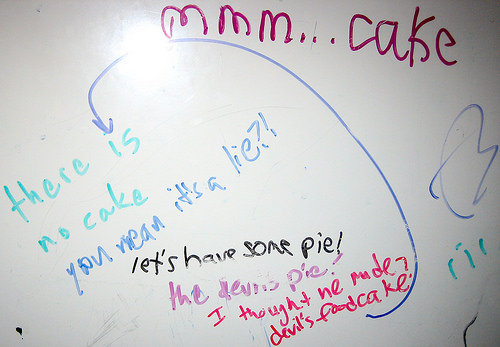 mmm...cake
there is
no cake
you mean it's a lie?!
let's have some pie!
the devil's pie?
I thought he made
devil's food cake?